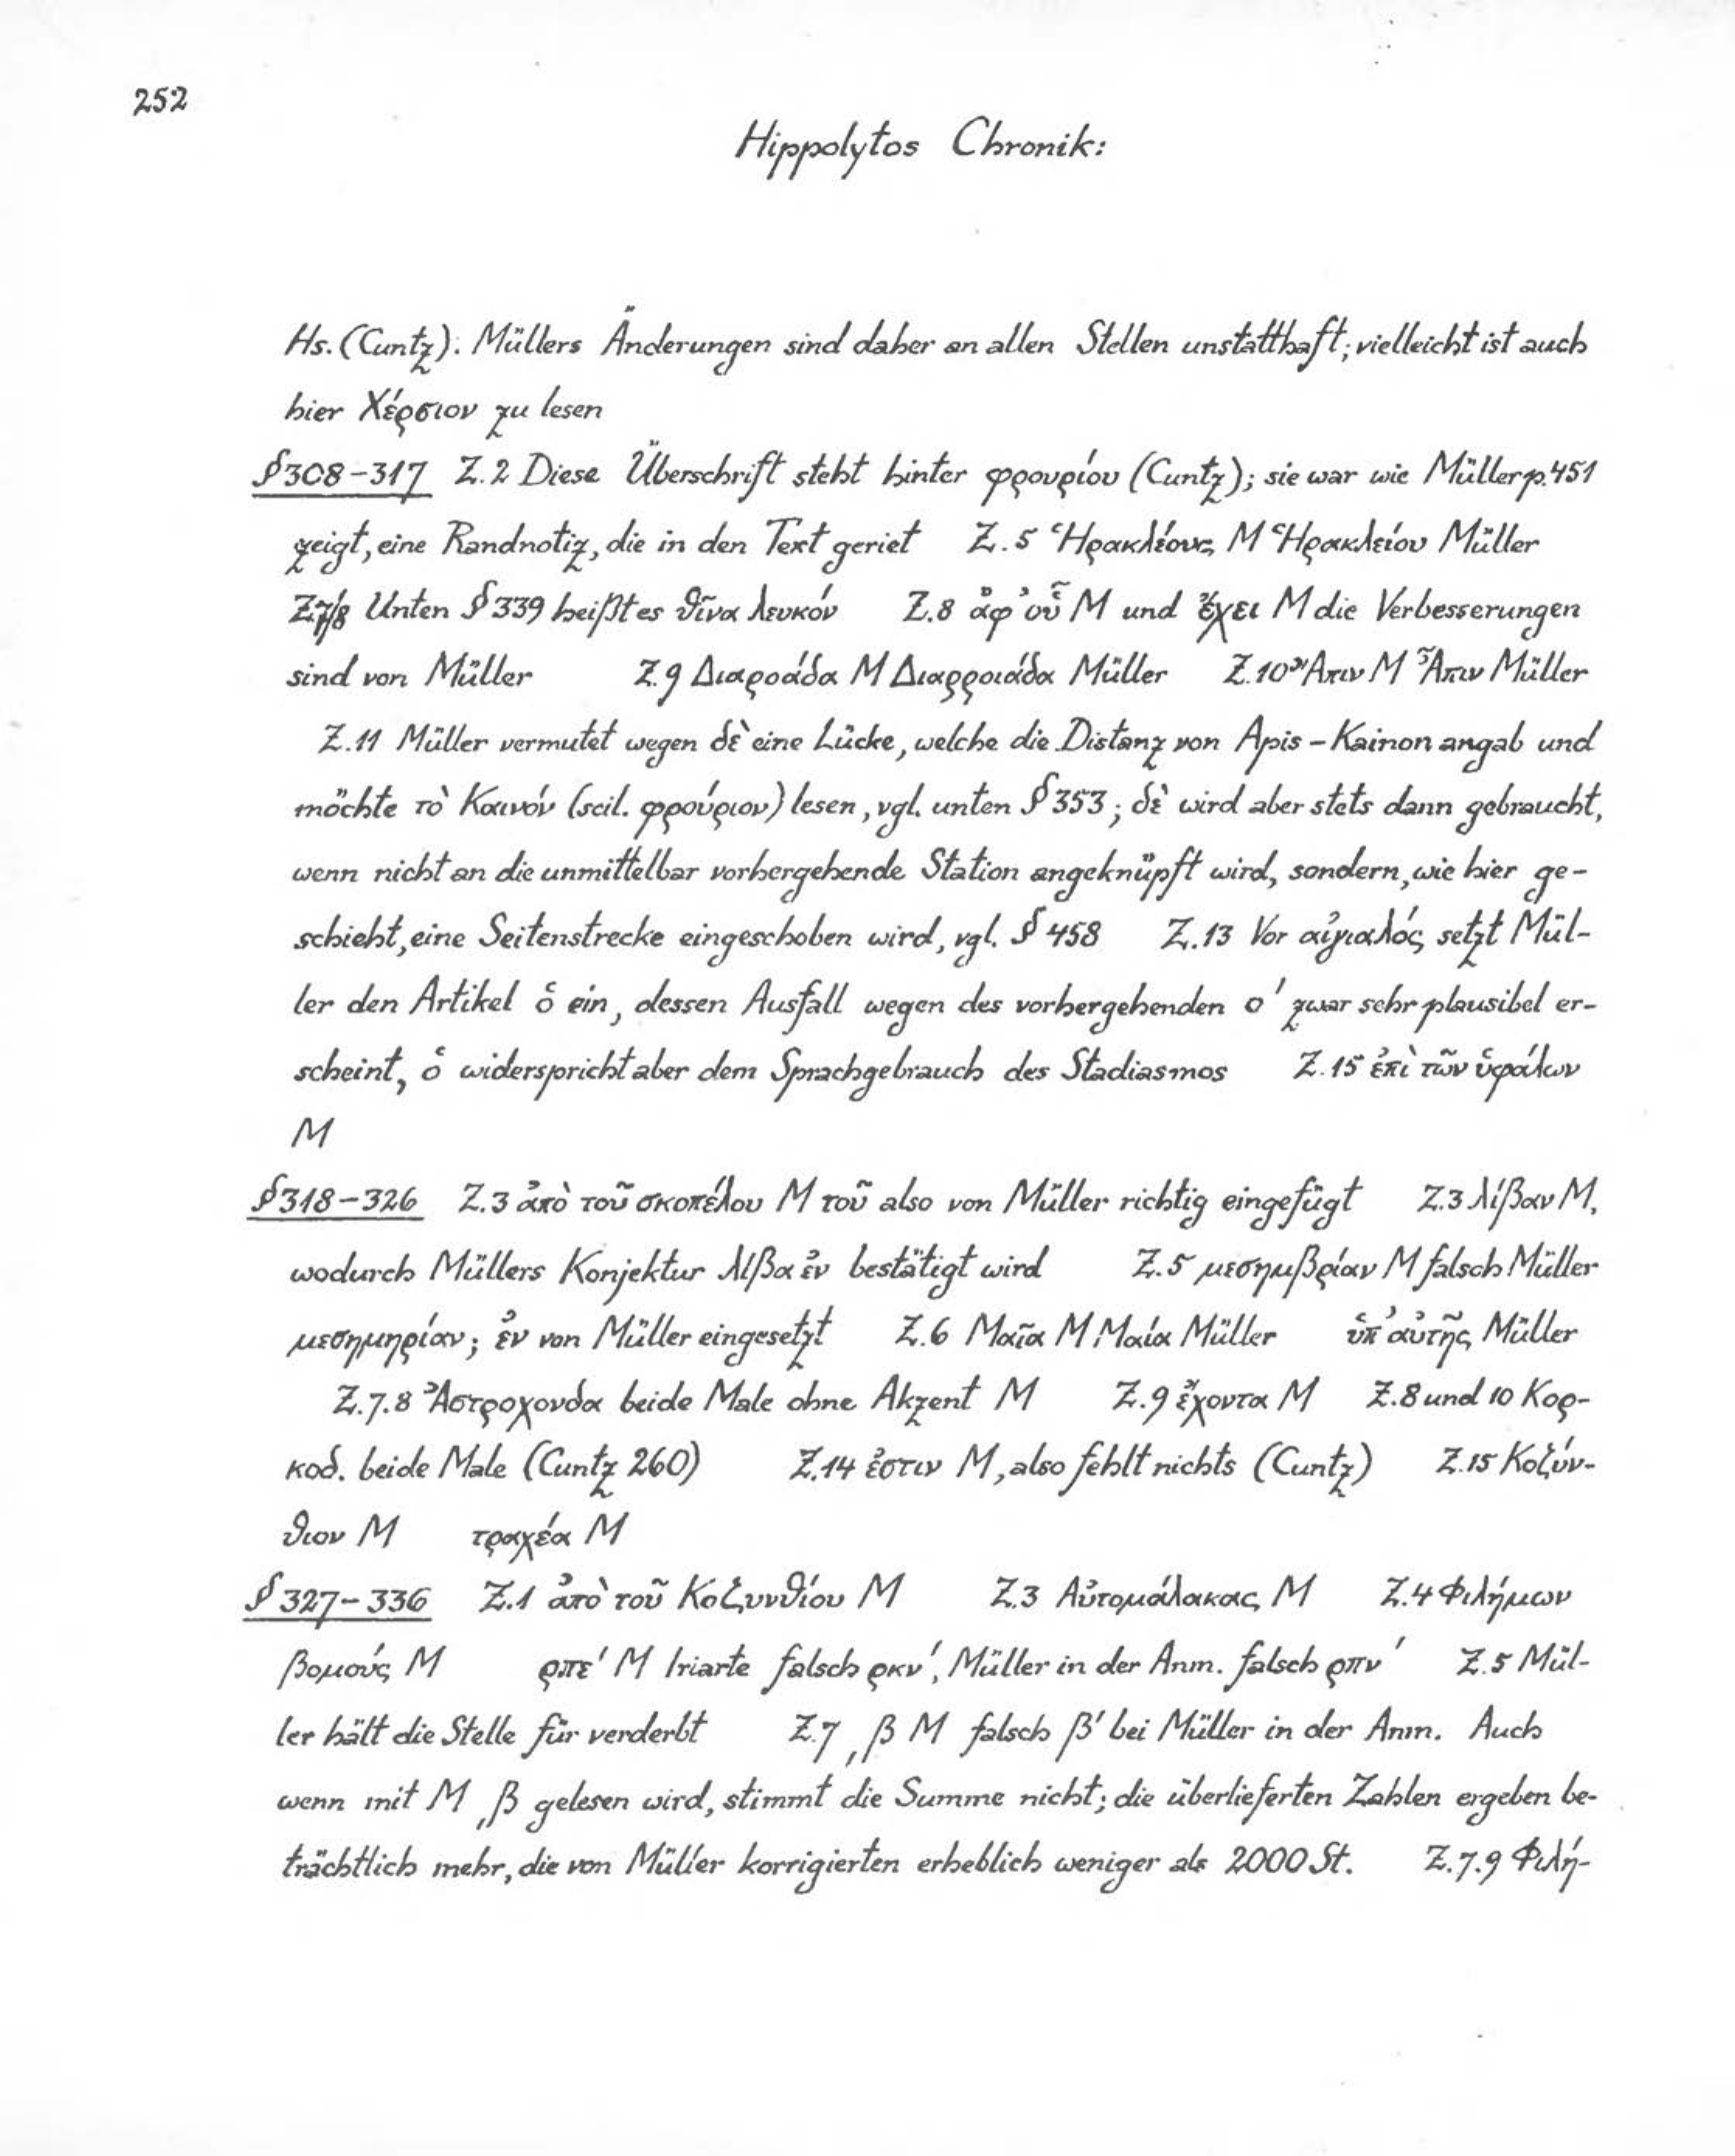 252
Hippolytos Chronik:
Hs. (Cuntz). Müllers Änderungen sind daher an allen Stellen unstatthaft; vielleicht ist auch
hier Χέρσιον zu lesen
§308-317 Z. 2 Diese Überschrift steht hinter φρουρίου (Cuntz); sie war wie Müller p. 451
zeigt, eine Randnotiz, die in den Text geriet Z. 5 Ἡρακλέους M Ἡρακλείου Müller
Z. 7/8 Unten § 339 heißt es θῖνα λευκόν Z. 8 ἀφ' οὗ M und ἔχει M die Verbesserungen
sind von Müller Z. 9 Διαροάδα M Διαρροιάδα Müller Z. 10 Ἄπιν M Ἆπιν Müller
Z. 11 Müller vermutet wegen δὲ eine Lücke, welche die Distanz von Apis - Kainon angab und
möchte τὸ Καινόν (scil. φρούριον) lesen, vgl. unten § 353; δὲ wird aber stets dann gebraucht,
wenn nicht an die unmittelbar vorhergehende Station angeknüpft wird, sondern, wie hier ge-
schieht, eine Seitenstrecke eingeschoben wird, vgl. § 458 Z. 13 Vor αἰγιαλός setzt Mül-
ler den Artikel ὁ ein, dessen Ausfall wegen des vorhergehenden ο' zwar sehr plausibel er-
scheint, ὁ widerspricht aber dem Sprachgebrauch des Stadiasmos Z. 15 ἐπὶ τῶν ὑφάλων
M
§318-326 Z. 3 ἀπὸ τοῦ σκοπέλου M τοῦ also von Müller richtig eingefügt Z. 3 λίβαν M,
wodurch Müllers Konjektur λίβα ἐν bestätigt wird Z. 5 μεσημβρίαν M falsch Müller
μεσημηρίαν; ἐν von Müller eingesetzt Z. 6 Μαῖα M Μαία Müller ὑπ' αὐτῆς Müller
Z. 7. 8 Ἀστροχονδα beide Male ohne Akzent M Z. 9 ἔχοντα M Z. 8 und 10 Κορ-
κοδ. beide Male (Cuntz 260) Z. 14 ἐστιν M, also fehlt nichts (Cuntz) Z. 15 Κοζύν-
θιον M τραχέα M
§327-336 Z. 1 ἀπὸ τοῦ Κοζυνθίου M Z. 3 Αὐτομάλακας M Z. 4 Φιλήμων
βομούς M ρπε' M Iriarte falsch ρκν', Müller in der Anm. falsch ρπν' Z. 5 Mül-
ler hält die Stelle für verderbt Z. 7 ͵β M falsch β' bei Müller in der Anm. Auch
wenn mit M ͵β gelesen wird, stimmt die Summe nicht; die überlieferten Zahlen ergeben be-
trächtlich mehr, die von Müller korrigierten erheblich weniger als 2000 St. Z. 7. 9 Φιλή-